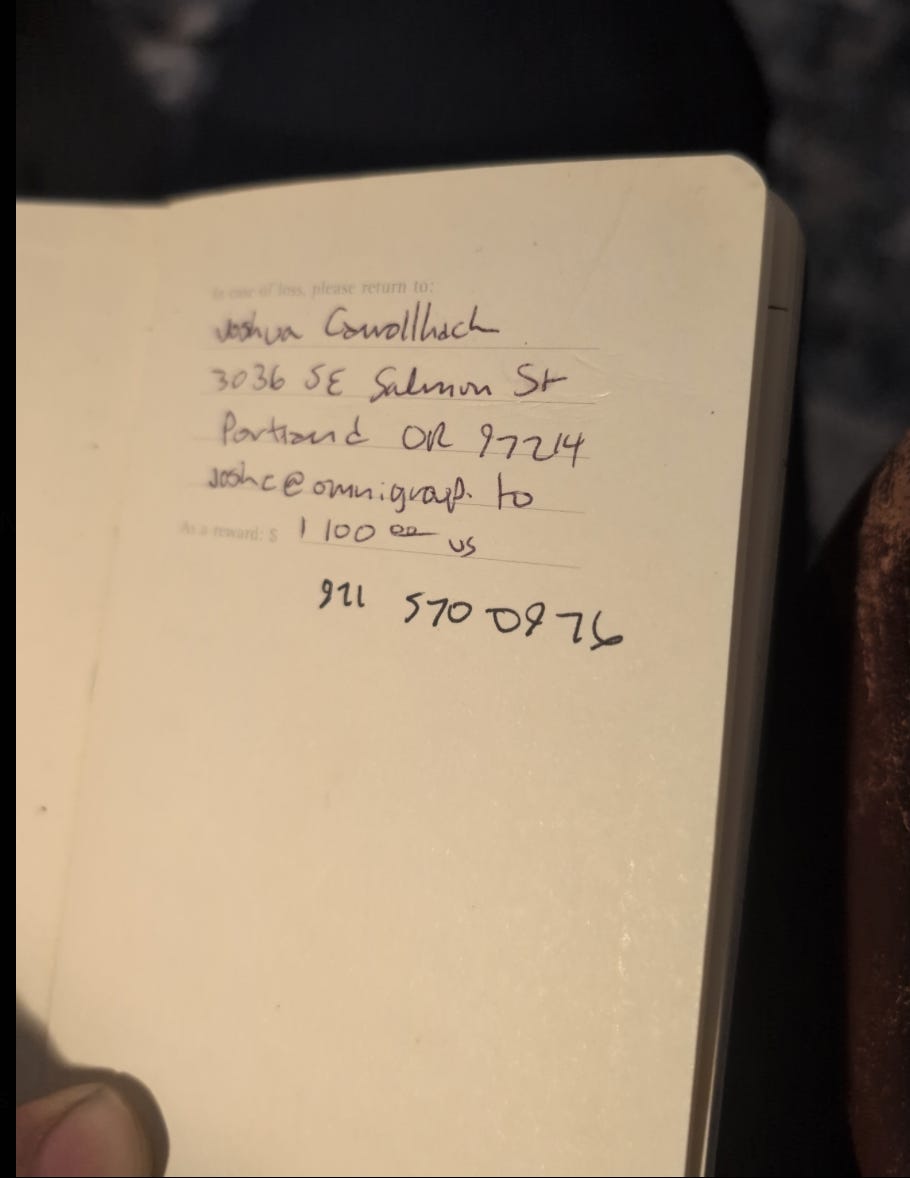 In case of loss, please return to:
Joshua
3036 SE Salmon St
Portland OR 97214
joshc@omnigraf. to
As a reward: $ 1 100 00 US
971 570 0976